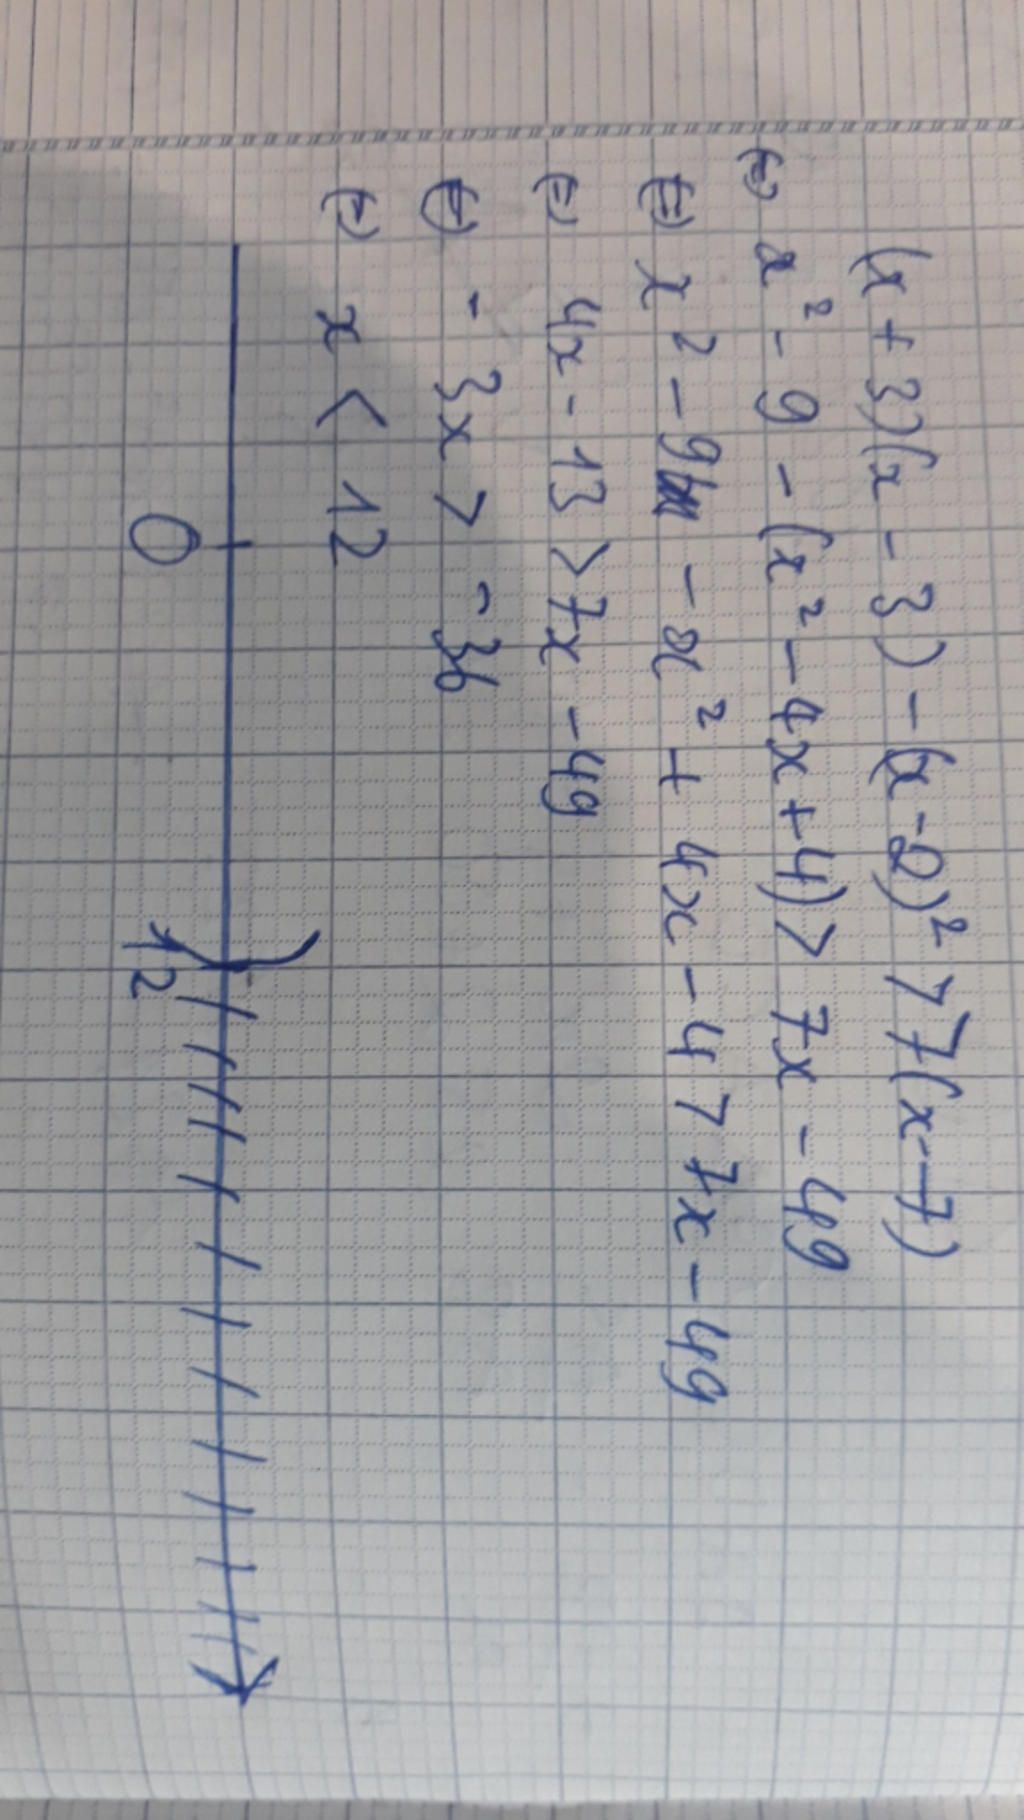 (x + 3)(x - 3) - (x - 2)² > 7(x - 7)
(=) x² - 9 - (x² - 4x + 4) > 7x - 49
(=) x² - 9 - x² + 4x - 4 > 7x - 49
(=) 4x - 13 > 7x - 49
(=) - 3x > - 36
(=) x < 12
0 12